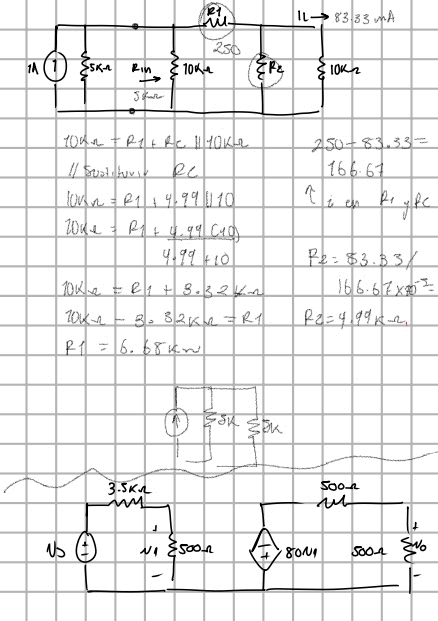 R1
IL → 83.33 mA
250
1A
5KΩ
Rin
5KΩ
10KΩ
R2
10KΩ
10KΩ = R1 + RC || 10KΩ
// Sustituir RC
10KΩ = R1 + 4.99 || 10
10KΩ = R1 + 4.99 (10)
4.99 + 10
10KΩ = R1 + 3.32KΩ
10KΩ - 3.32KΩ = R1
R1 = 6.68KΩ
250 - 83.33 =
166.67
↑ i en R1 y RC
R2 = 83.33 /
166.67x10⁻³ =
R2 = 4.99KΩ
5K
5K
3.5KΩ
500Ω
+
V1
500Ω
-
80V1
500Ω
+
Vo
-